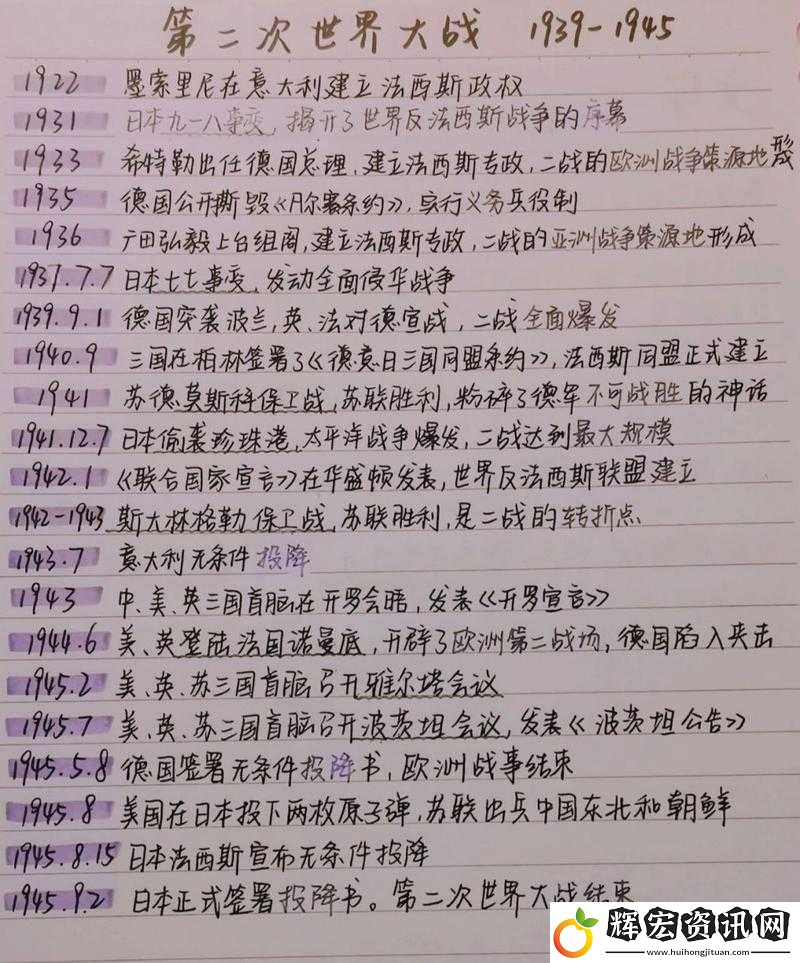 第二次世界大战 1939-1945
1922 墨索里尼在意大利建立法西斯政权
1931 日本九一八事变，揭开了世界反法西斯战争的序幕
1933 希特勒出任德国总理，建立法西斯专政，二战的欧洲战争策源地形成
1935 德国公开撕毁《凡尔赛条约》，实行义务兵役制
1936 广田弘毅上台组阁，建立法西斯专政，二战的亚洲战争策源地形成
1937.7.7 日本七七事变，发动全面侵华战争
1939.9.1 德国突袭波兰，英、法对德宣战，二战全面爆发
1940.9 三国在柏林签署了《德意日三国同盟条约》，法西斯同盟正式建立
1941 苏德莫斯科保卫战，苏联胜利，粉碎了德军不可战胜的神话
1941.12.7 日本偷袭珍珠港，太平洋战争爆发，二战达到最大规模
1942.1 《联合国家宣言》在华盛顿发表，世界反法西斯联盟建立
1942-1943 斯大林格勒保卫战，苏联胜利，是二战的转折点
1943.7 意大利无条件投降
1943 中、美、英三国首脑在开罗会晤，发表《开罗宣言》
1944.6 美、英登陆法国诺曼底，开辟了欧洲第二战场，德国陷入夹击
1945.2 美、英、苏三国首脑召开雅尔塔会议
1945.7 美、英、苏三国首脑召开波茨坦会议，发表《波茨坦公告》
1945.5.8 德国签署无条件投降书，欧洲战事结束
1945.8 美国在日本投下两枚原子弹，苏联出兵中国东北和朝鲜
1945.8.15 日本法西斯宣布无条件投降
1945.9.2 日本正式签署投降书。第二次世界大战结束
辉宏资讯网
www.huihongjituan.com